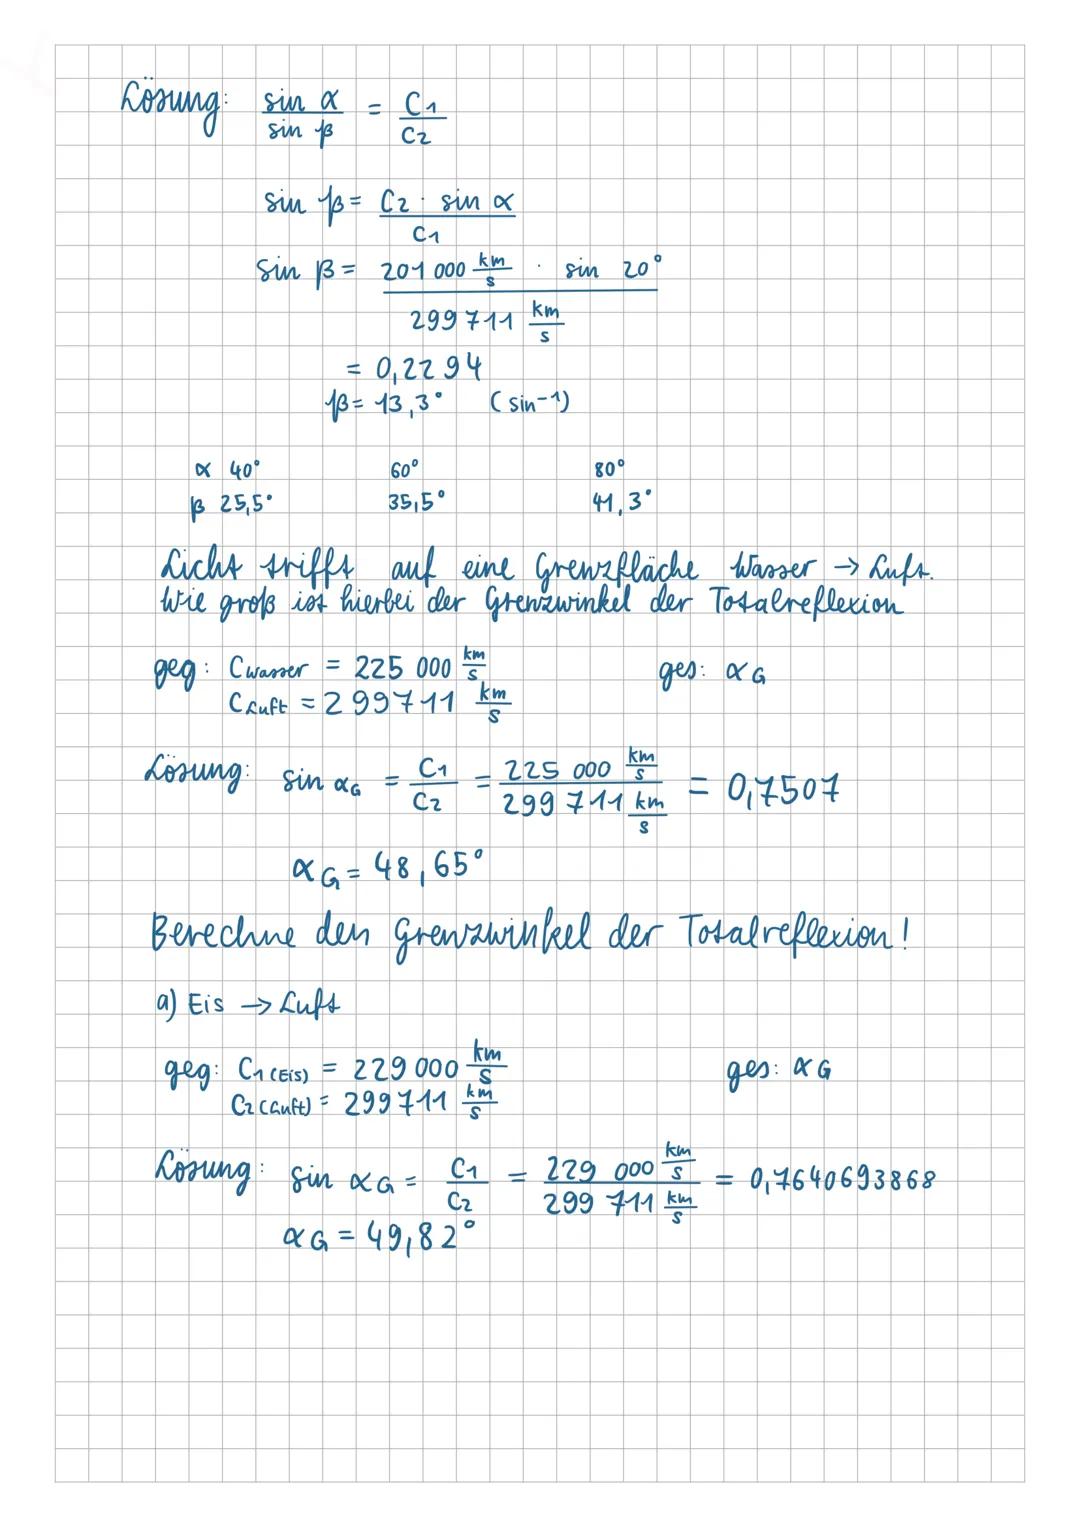 Lösung: sin α / sin β = C1 / C2
sin β = C2 · sin α / C1
sin β = 201 000 km/s · sin 20° / 299 711 km/s
= 0,2294
β = 13,3° (sin-1)
α 40° 60° 80°
β 25,5° 35,5° 41,3°
Licht trifft auf eine Grenzfläche Wasser → Luft.
Wie groß ist hierbei der Grenzwinkel der Totalreflexion
geg: CWasser = 225 000 km/s ges: αG
CLuft = 299711 km/s
Lösung: sin αG = C1 / C2 = 225 000 km/s / 299 711 km/s = 0,7507
αG = 48,65°
Berechne den Grenzwinkel der Totalreflexion!
a) Eis → Luft
geg: C1 (Eis) = 229 000 km/s ges: αG
C2 (Luft) = 299711 km/s
Lösung: sin αG = C1 / C2 = 229 000 km/s / 299 711 km/s = 0,7640693868
αG = 49,82°